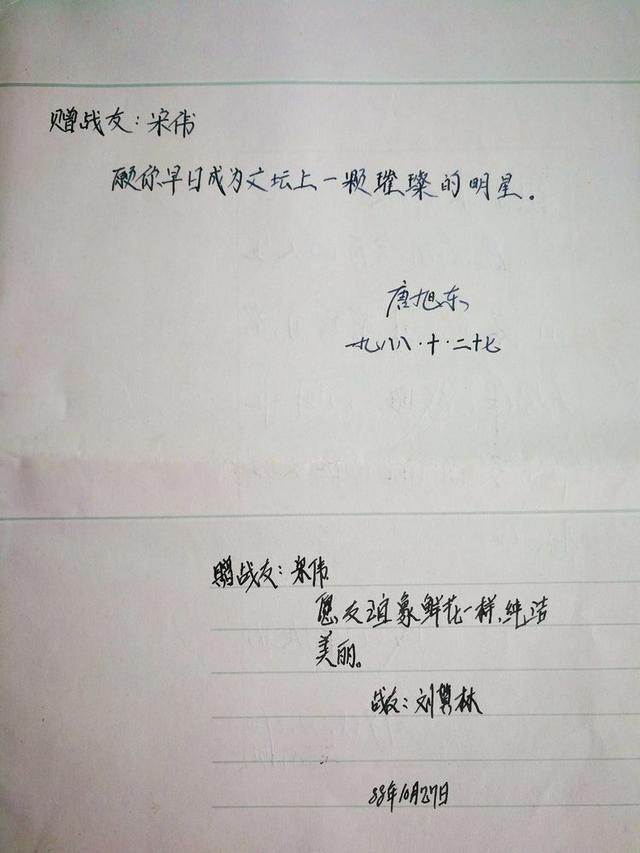 赠战友：宋伟
愿你早日成为文坛上一颗璀璨的明星。
唐旭东
一九八八·十·二十七
赠战友：宋伟
愿友谊象鲜花一样，纯洁
美丽。
战友：刘 林
88年10月27日